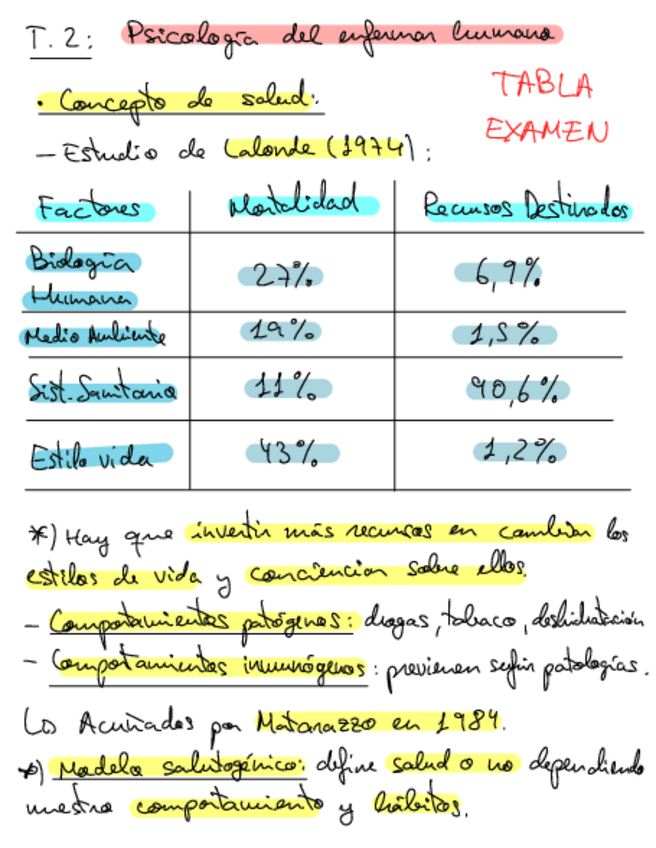 T. 2: Psicología del enfermar humano
TABLA
EXAMEN
· Concepto de salud:
- Estudio de Lalonde (1974):
Factores Mortalidad Recursos Destinados
Biología Humana 27% 6,9%
Medio Ambiente 19% 1,5%
Sist. Sanitario 11% 90,6%
Estilo vida 43% 1,2%
*) Hay que invertir más recursos en cambiar los
estilos de vida y concienciar sobre ellos.
- Comportamientos patógenos: drogas, tabaco, deshidratación
- Comportamientos inmunógenos: previenen según patologías.
↳ Acuñados por Matarazzo en 1984.
*) Modelo salutogénico: define salud o no dependiendo
nuestro comportamiento y hábitos.